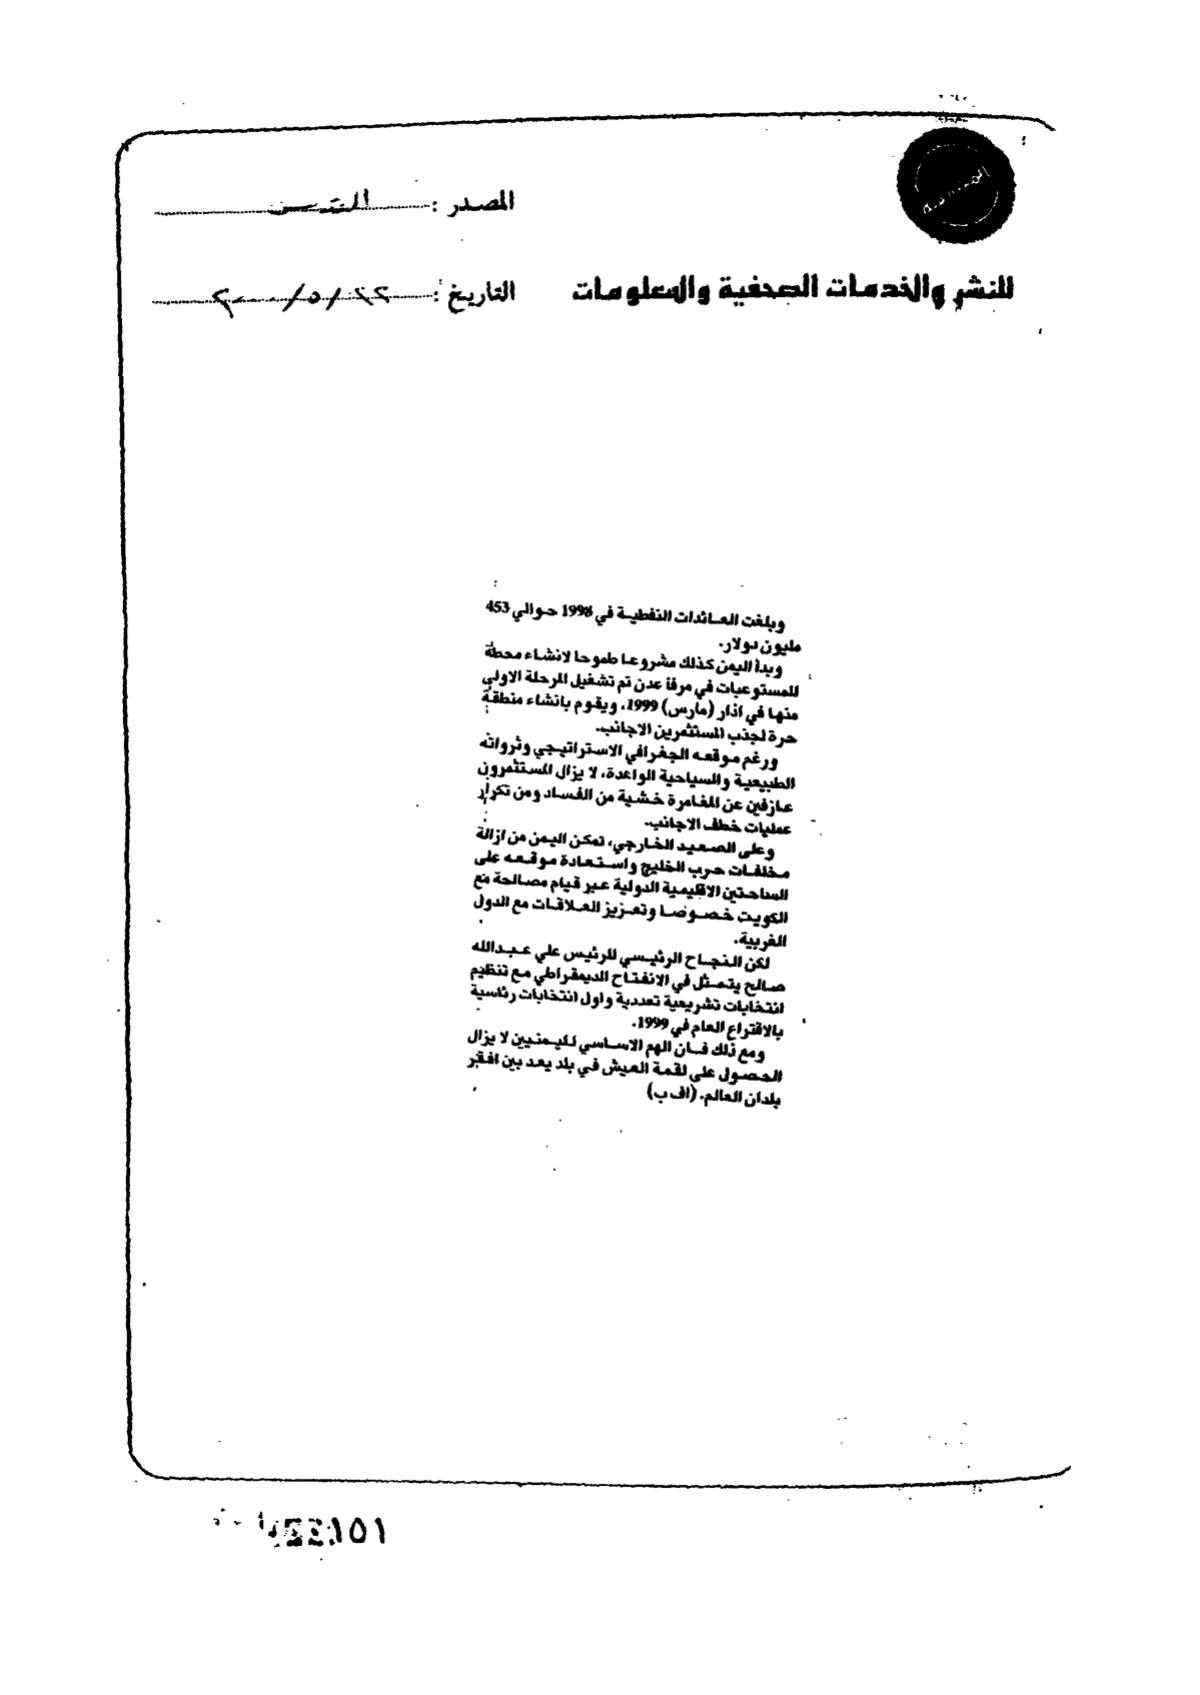 المصدر : القدس
للنشر والخدمات الصحفية والمعلومات
التاريخ : ٢٢/٥/٢٠٠٠
وبلغت العائدات النفطية في 1998 حوالي 453
مليون دولار.
وبدأ اليمن كذلك مشروعا طموحا لانشاء محطة
للمستوعبات في مرفأ عدن تم تشغيل المرحلة الاولى
منها في اذار (مارس) 1999، ويقوم بانشاء منطقة
حرة لجذب المستثمرين الاجانب.
ورغم موقعه الجغرافي الاستراتيجي وثرواته
الطبيعية والسياحية الواعدة، لا يزال المستثمرون
عازفين عن المغامرة خشية من الفساد ومن تكرار
عمليات خطف الاجانب.
وعلى الصعيد الخارجي، تمكن اليمن من ازالة
مخلفات حرب الخليج واستعادة موقعه على
الساحتين الاقليمية الدولية عبر قيام مصالحة مع
الكويت خصوصا وتعزيز العلاقات مع الدول
الغربية.
لكن النجاح الرئيسي للرئيس علي عبدالله
صالح يتمثل في الانفتاح الديمقراطي مع تنظيم
انتخابات تشريعية تعددية واول انتخابات رئاسية
بالاقتراع العام في 1999.
ومع ذلك فان الهم الاساسي لليمنيين لا يزال
الحصول على لقمة العيش في بلد يعد بين افقر
بلدان العالم. (اف ب)